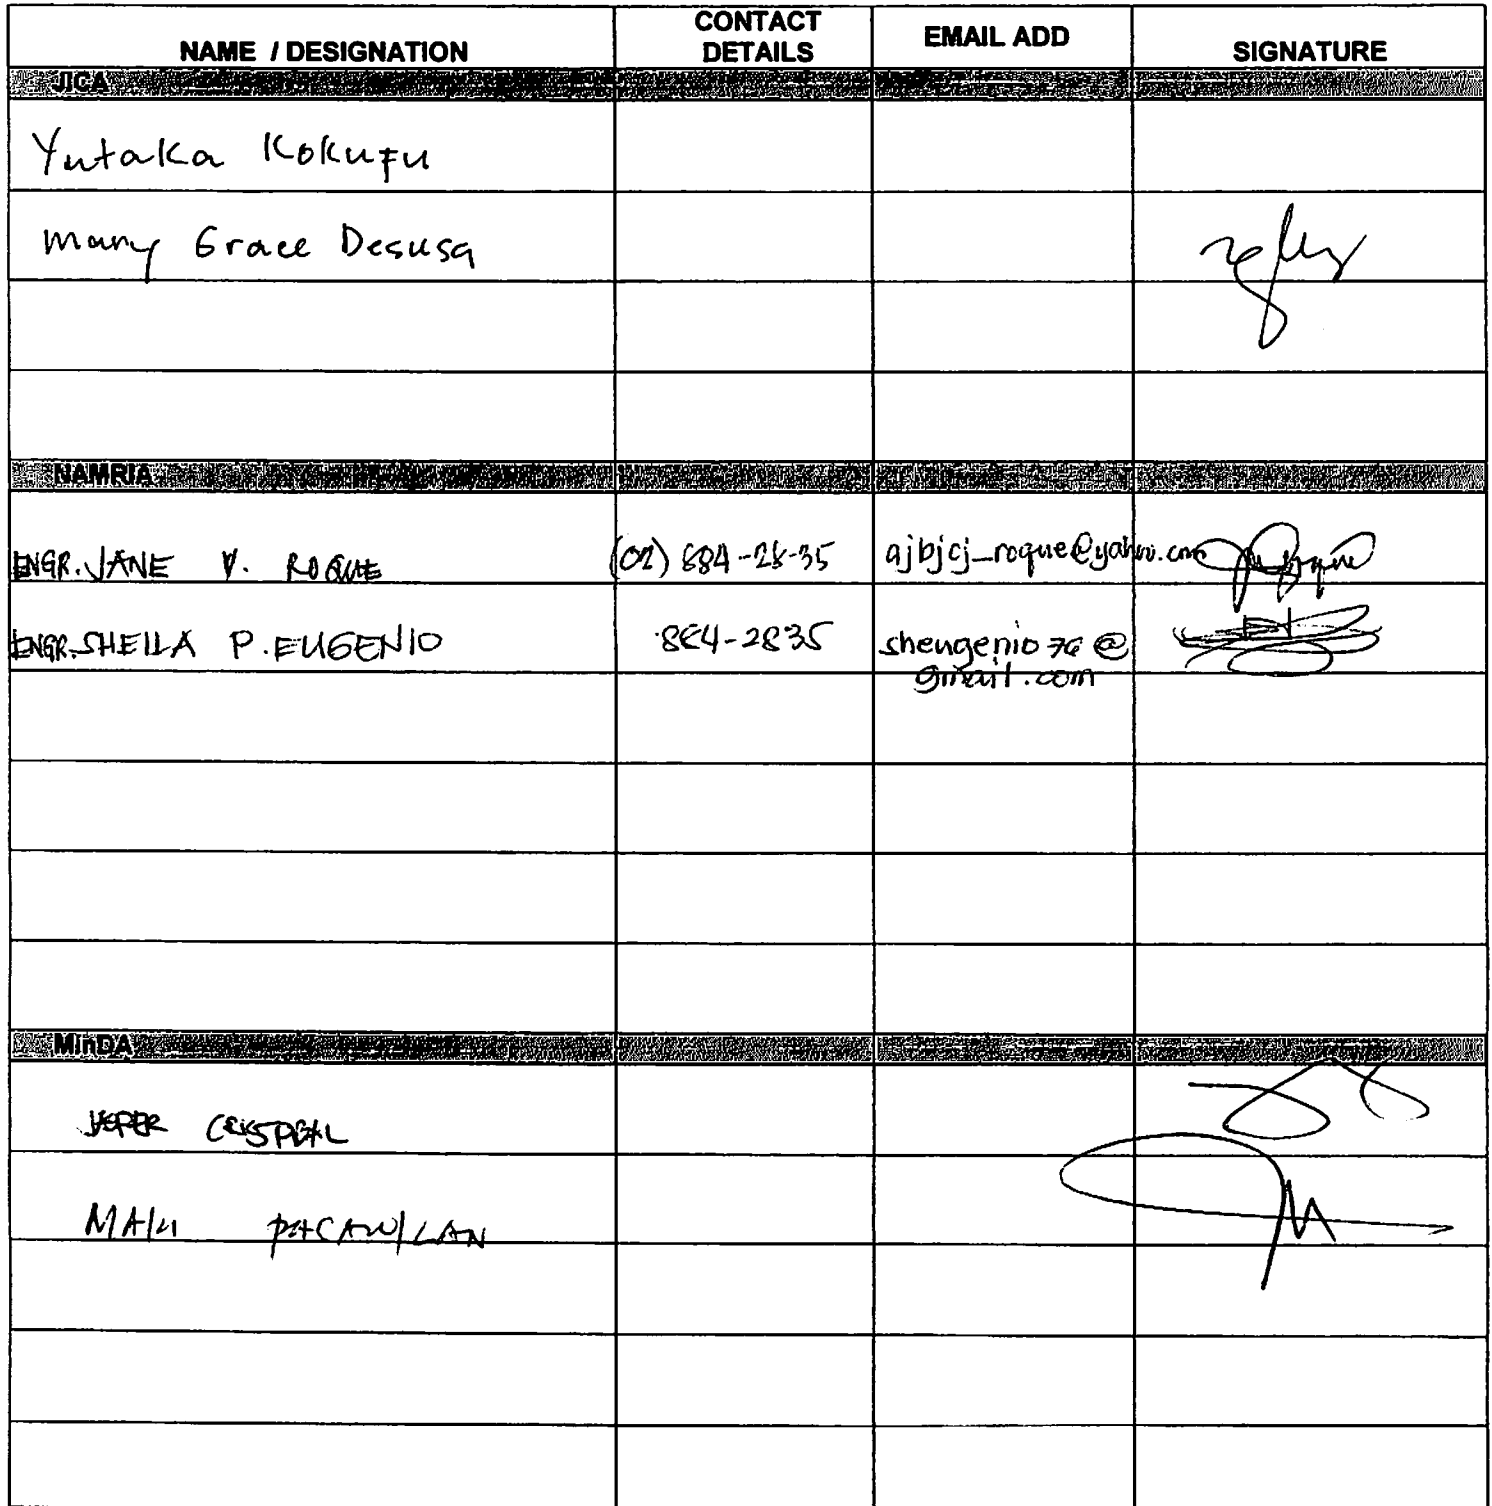 NAME / DESIGNATION
CONTACT
DETAILS
EMAIL ADD
SIGNATURE
JICA
Yutaka Kokufu
Mary Grace Desusa
NAMRIA
ENGR. JANE V. ROQUE (02) 884-28-35 ajbjcj_roque@yahoo.com
ENGR. SHEILA P. EUGENIO 884-2835 shengenio76@
gmail.com
MinDA
CRISPEAL